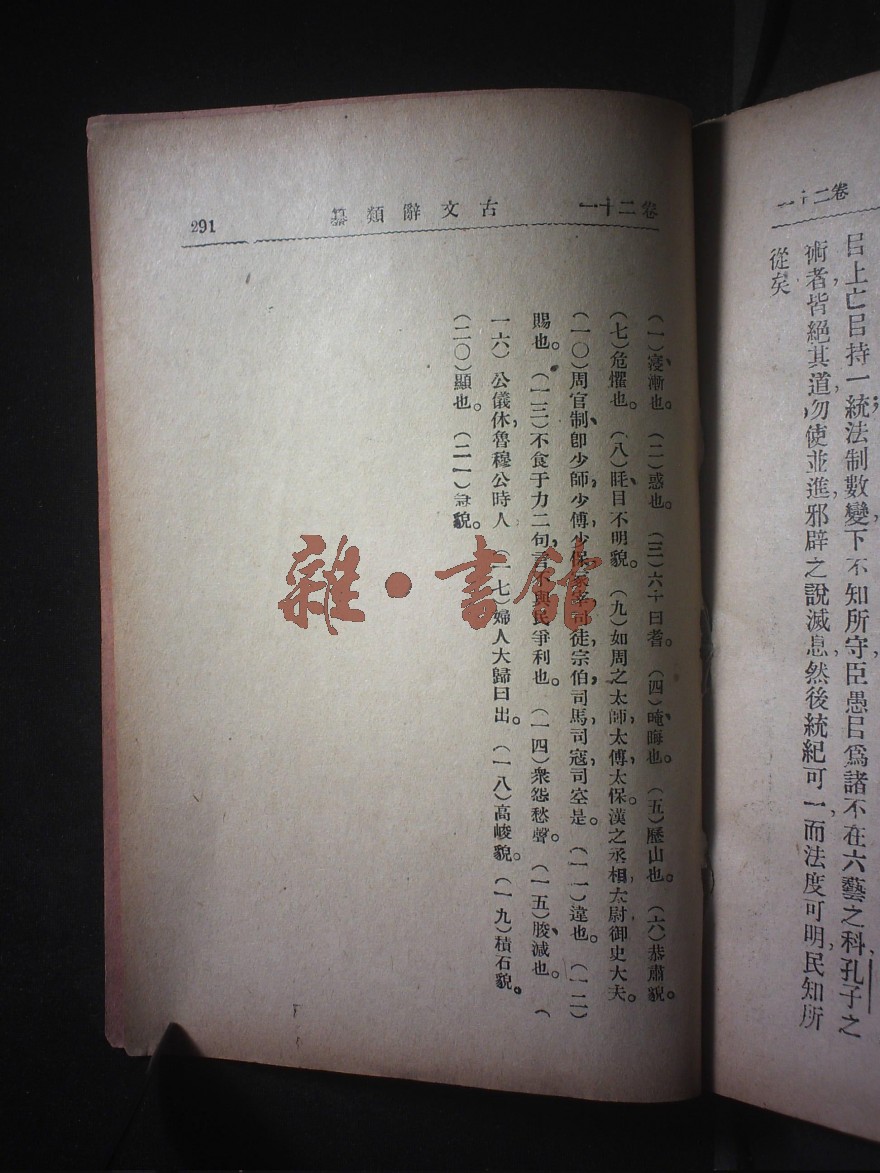 卷二十一
㠯上亡㠯持一統法制數變下不知所守臣愚㠯爲諸不在六藝之科孔子之
術者皆絕其道勿使並進邪辟之說滅息然後統紀可一而法度可明民知所
從矣
卷二十一 古文辭類纂 291
(一)寖、漸也。 (二)惑也。 (三)六十曰耆。 (四)晻、晦也。 (五)歷山也。 (六)恭肅貌。
(七)危懼也。 (八)眊、目不明貌。 (九)如周之太師,太傅,太保。漢之丞相,太尉,御史大夫。
(一〇)周官制、卽少師,少傅,少保,冢宰,司徒,宗伯,司馬,司寇,司空是。 (一一)違也。 (一二)
賜也。 (一三)不食于力二句,言不與民爭利也。 (一四)衆怨愁聲。 (一五)朘、減也。 (
一六) 公儀休,魯穆公時人 (一七)婦人大歸曰出。 (一八)高峻貌。 (一九)積石貌。
(二〇)顯也。 (二一)急貌。
雜·書館